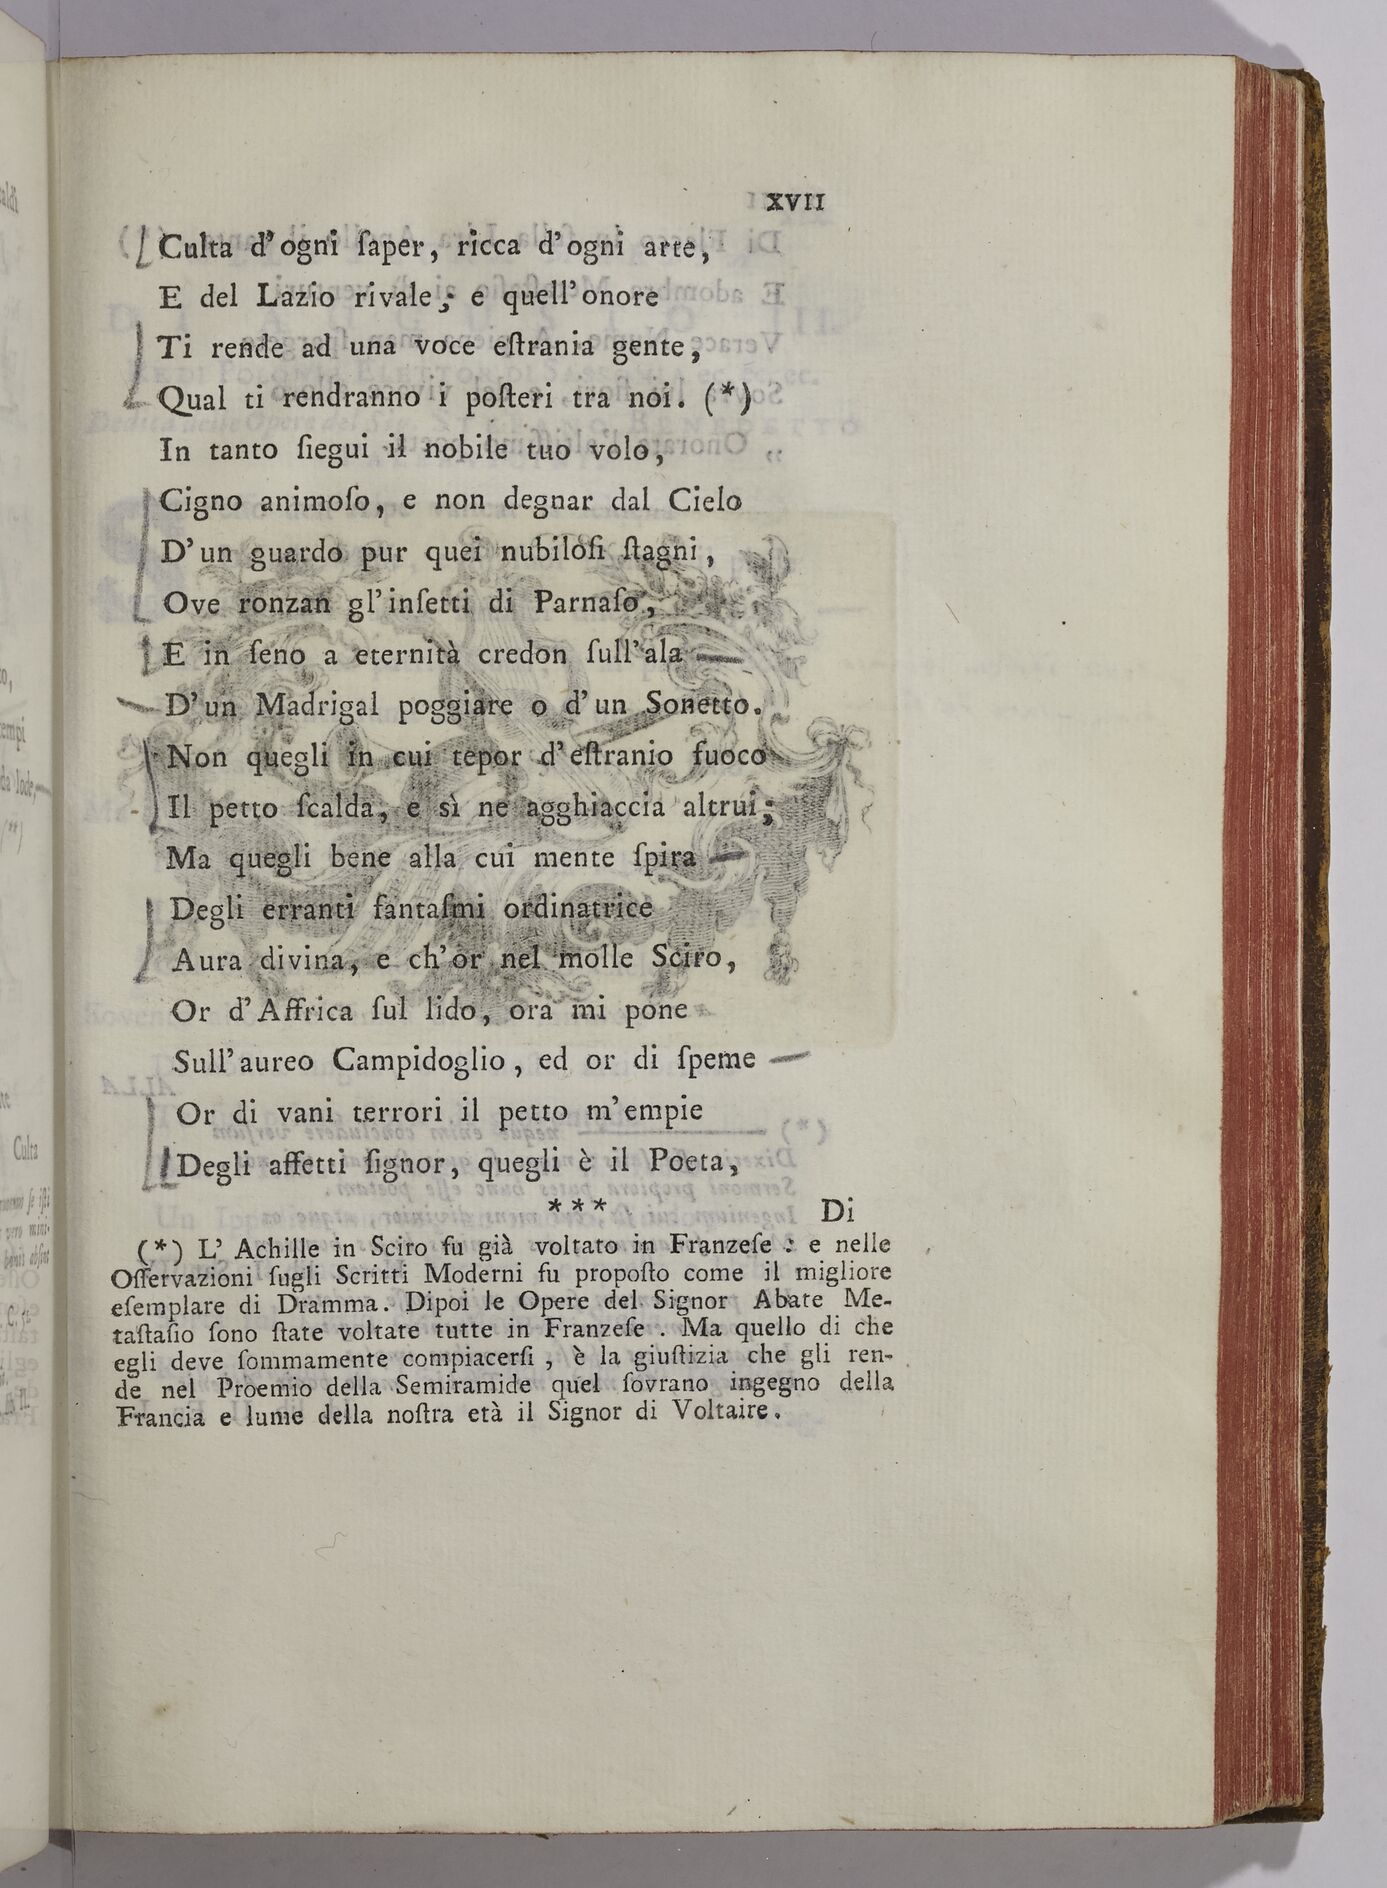 XVII
Culta d'ogni ſaper, ricca d'ogni arte,
E del Lazio rivale; e quell'onore
Ti rende ad una voce eſtrania gente,
Qual ti rendranno i poſteri tra noi. (*)
In tanto ſiegui il nobile tuo volo,
Cigno animoſo, e non degnar dal Cielo
D'un guardo pur quei nubiloſi ſtagni,
Ove ronzan gl'inſetti di Parnaſo,
E in ſeno a eternità credon ſull'ala
D'un Madrigal poggiare o d'un Sonetto.
Non quegli in cui tepor d'eſtranio fuoco
Il petto ſcalda, e sì ne agghiaccia altrui;
Ma quegli bene alla cui mente ſpira
Degli erranti fantaſmi ordinatrice
Aura divina, e ch'or nel molle Sciro,
Or d'Affrica ſul lido, ora mi pone
Sull'aureo Campidoglio, ed or di ſpeme
Or di vani terrori il petto m'empie
Degli affetti ſignor, quegli è il Poeta,
*** Di
(*) L' Achille in Sciro fu già voltato in Franzeſe : e nelle
Oſſervazioni ſugli Scritti Moderni fu propoſto come il migliore
eſemplare di Dramma. Dipoi le Opere del Signor Abate Me-
taſtaſio ſono ſtate voltate tutte in Franzeſe . Ma quello di che
egli deve ſommamente compiacerſi , è la giuſtizia che gli ren-
de nel Proemio della Semiramide quel ſovrano ingegno della
Francia e lume della noſtra età il Signor di Voltaire.